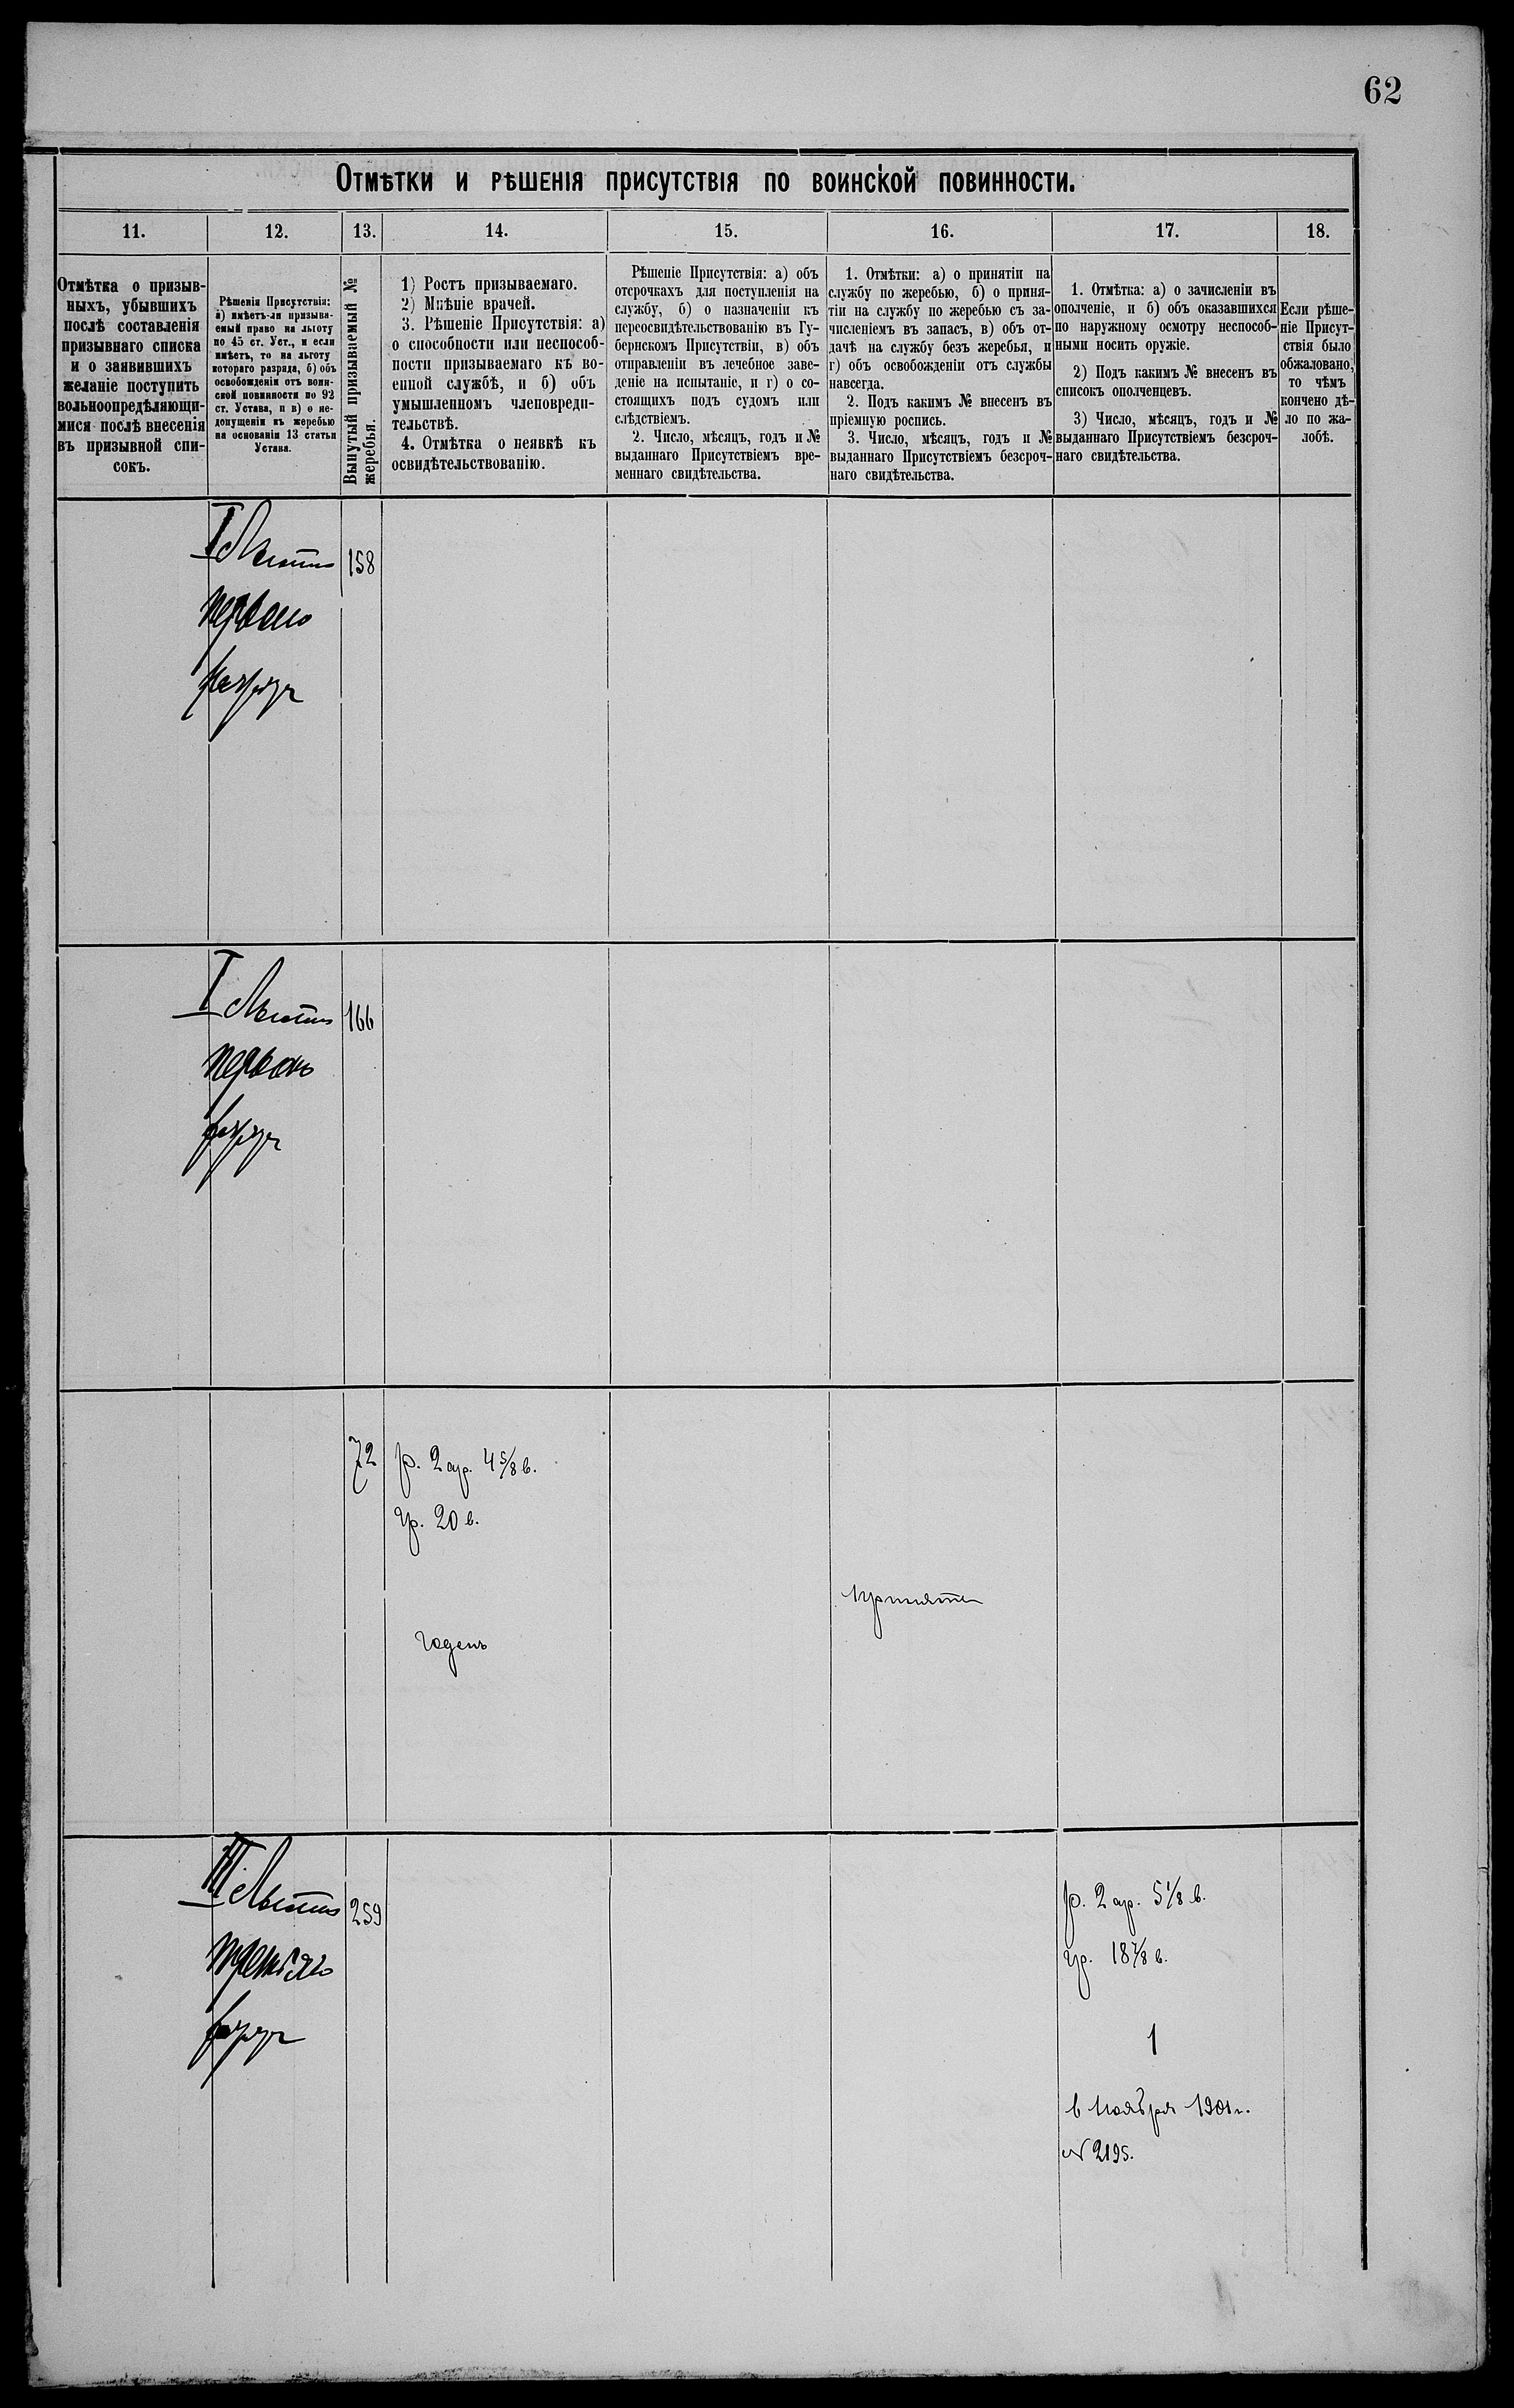 62
Отмѣтки и рѣшенія присутствія по воинской повинности.
11.
12.
13.
14.
15.
16.
17.
18.
Отмѣтка о призыв-
ныхъ, убывшихъ
послѣ составленія
призывнаго списка
и о заявившихъ
желаніе поступить
вольноопредѣляющи-
мися послѣ внесенія
въ призывной спи-
сокъ.
Рѣшенія Присутствія:
а) имѣетъ-ли призыва-
емый право на льготу
по 45 ст. Уст., и если
имѣетъ, то на льготу
котораго разряда, б) объ
освобожденіи отъ воин-
ской повинности по 92
ст. Устава, и в) о не-
допущеніи къ жеребью
на основаніи 13 статьи
Устава.
Вынутый призываемый №
жеребья.
1) Ростъ призываемаго.
2) Мнѣніе врачей.
3. Рѣшеніе Присутствія: а)
о способности или неспособ-
ности призываемаго къ во-
енной службѣ, и б) объ
умышленномъ членовреди-
тельствѣ.
4. Отмѣтка о неявкѣ къ
освидѣтельствованію.
Рѣшеніе Присутствія: а) объ
отсрочкахъ для поступленія на
службу, б) о назначеніи къ
переосвидѣтельствованію въ Гу-
бернскомъ Присутствіи, в) объ
отправленіи въ лечебное заве-
деніе на испытаніе, и г) о со-
стоящихъ подъ судомъ или
слѣдствіемъ.
2. Число, мѣсяцъ, годъ и №
выданнаго Присутствіемъ вре-
меннаго свидѣтельства.
1. Отмѣтки: а) о принятіи на
службу по жеребью, б) о приня-
тіи на службу по жеребью съ за-
численіемъ въ запасъ, в) объ от-
дачѣ на службу безъ жеребья, и
г) объ освобожденіи отъ службы
навсегда.
2. Подъ какимъ № внесенъ въ
пріемную роспись.
3. Число, мѣсяцъ, годъ и №
выданнаго Присутствіемъ безсроч-
наго свидѣтельства.
1. Отмѣтка: а) о зачисленіи въ
ополченіе, и б) объ оказавшихся
по наружному осмотру неспособ-
ными носить оружіе.
2) Подъ какимъ № внесенъ въ
списокъ ополченцевъ.
3) Число, мѣсяцъ, годъ и №
выданнаго Присутствіемъ безсроч-
наго свидѣтельства.
Если рѣше-
ніе Присут-
ствія было
обжаловано,
то чѣмъ
кончено дѣ-
ло по жа-
лобѣ.
I Льготы
158
перваго
разряда
I Льготы
166
перваго
разряда
72
р. 2 ар. 4 5/8 в.
гр. 20 в.
принятъ
годенъ
III Льготы
259
третьяго
разряда
р. 2 ар. 5 1/8 в.
гр. 18 7/8 в.
1
6 ноября 1901 г.
№ 2195.